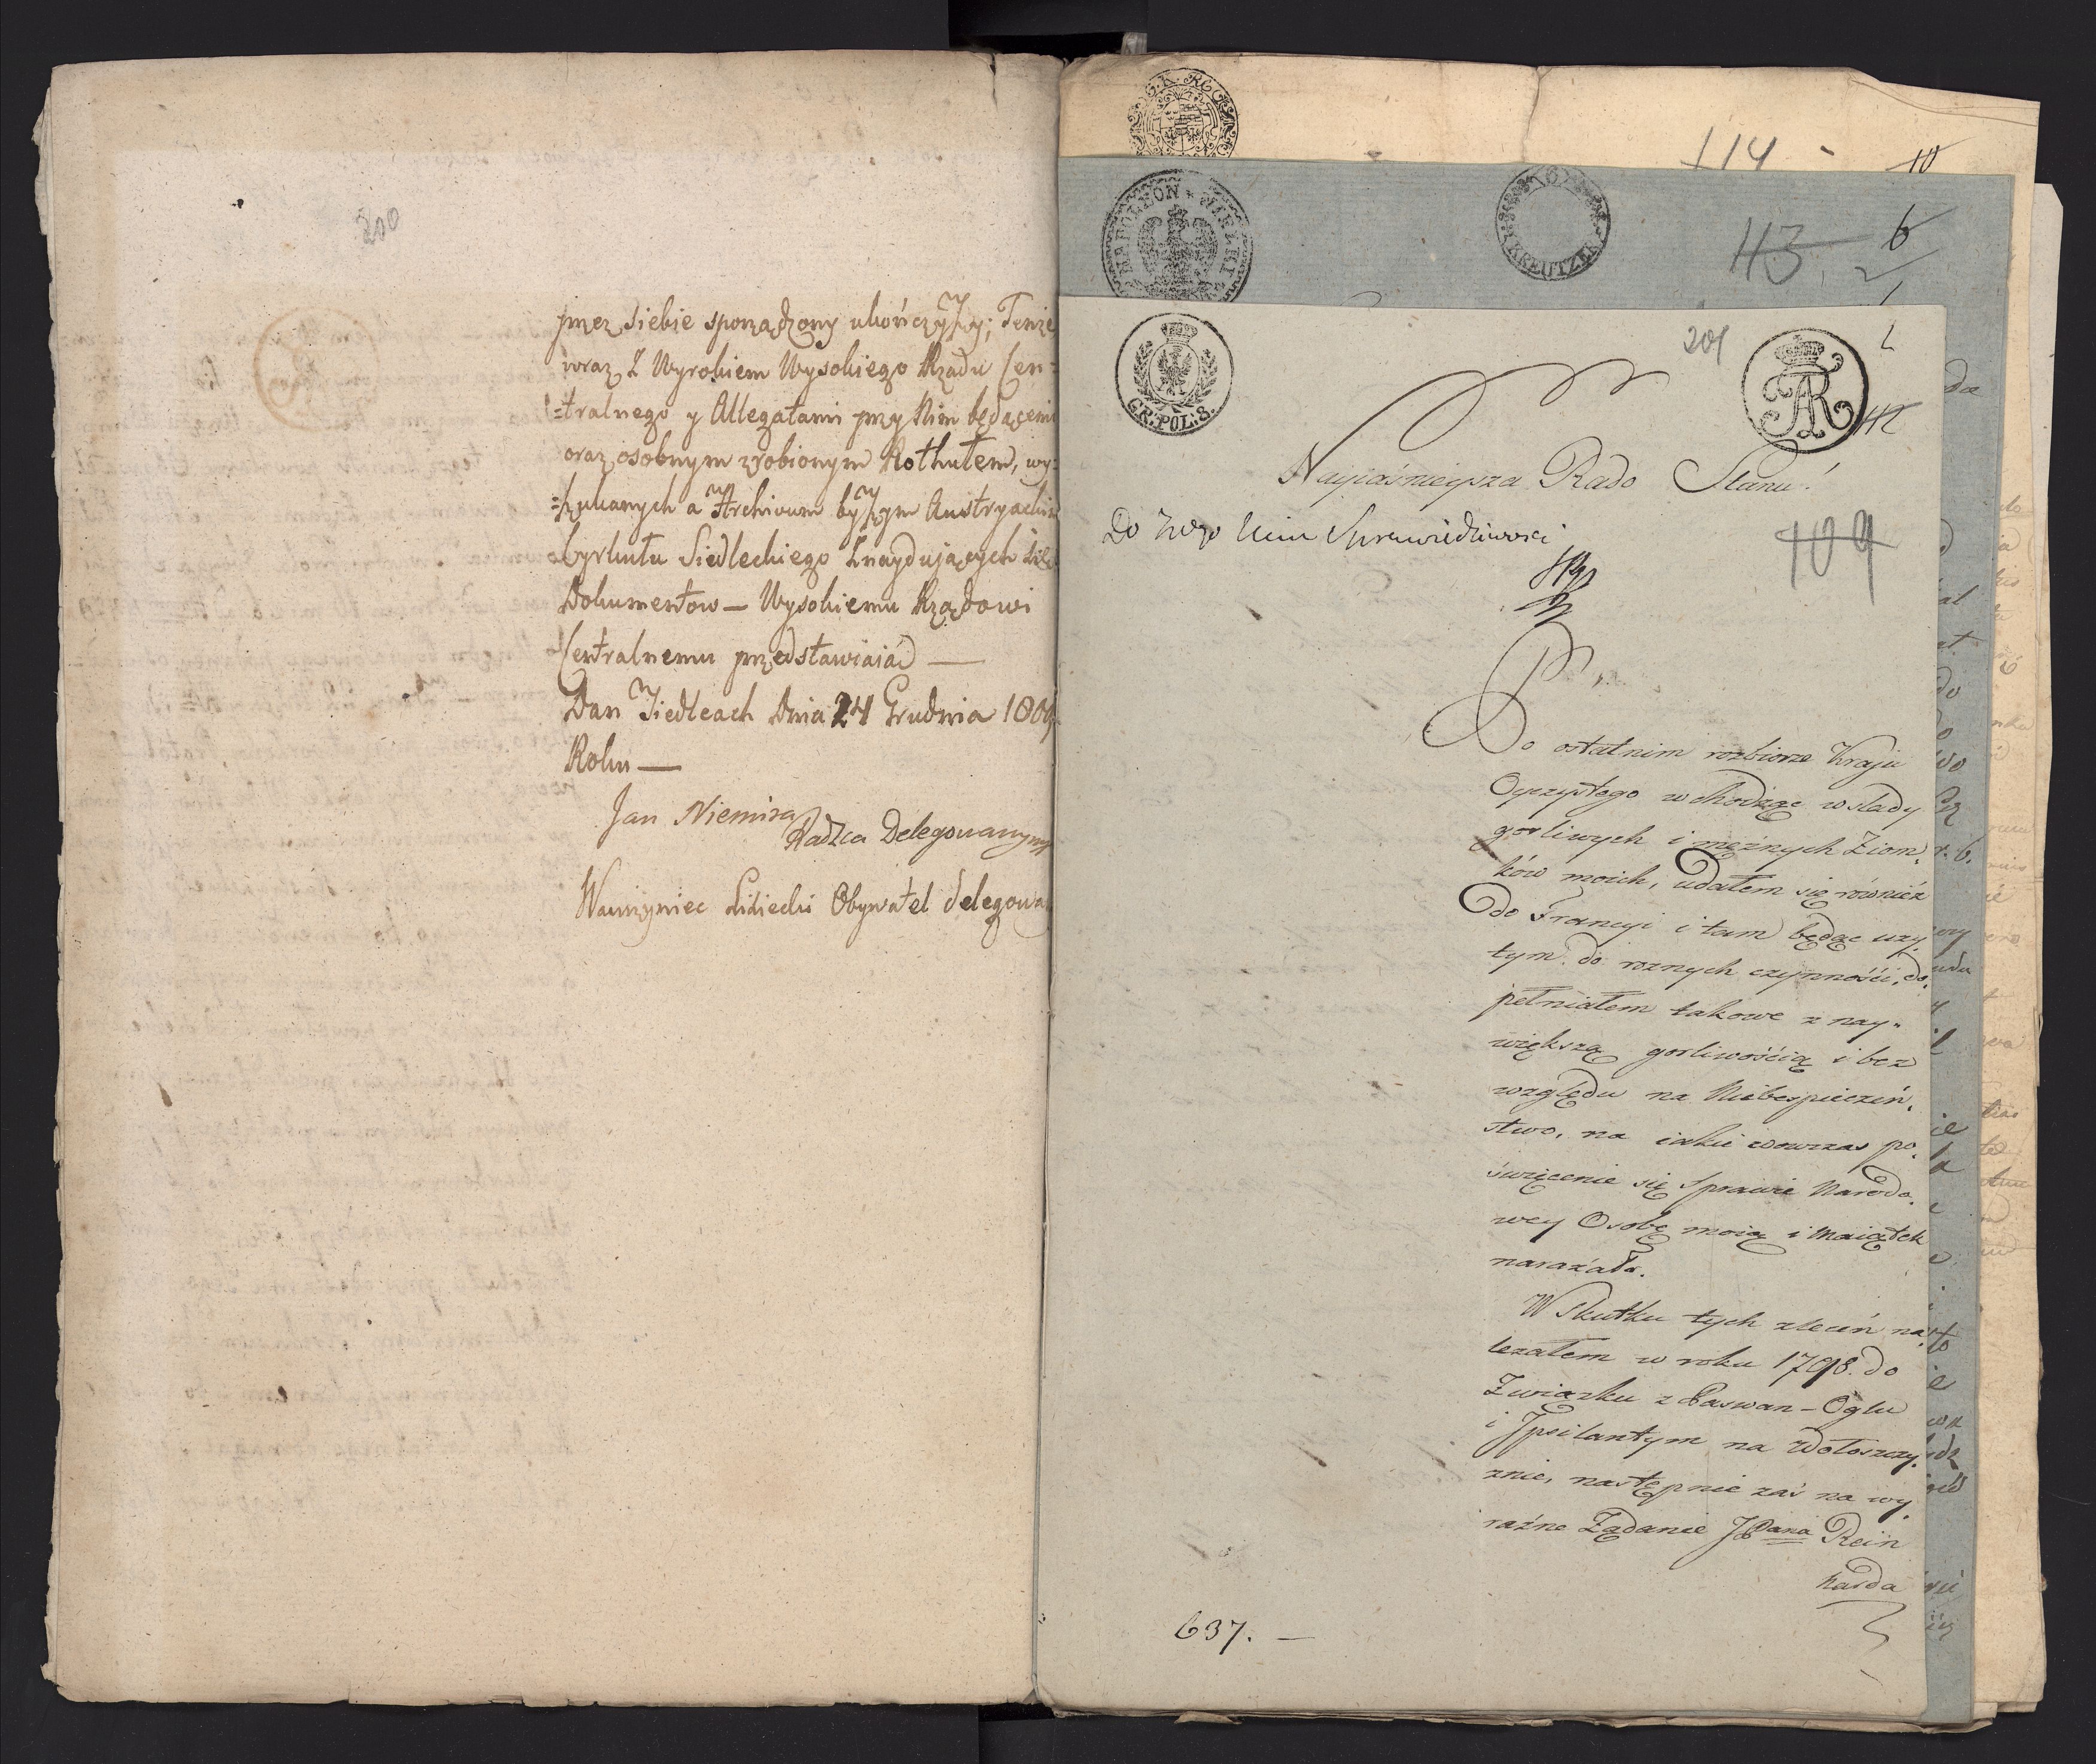 200
przez siebie sporządzony ukończyszy; Tenże
wraz z Wyrokiem Wysokiego Rządu Cen=
=tralnego y Allegatami przy Nim będącemi
oraz osobnym zrobionym Rothułem, wy=
=szukanych a w Archivum byszym Austryackim
Cyrkułu Siedleckiego Znaydujących się
Dokumentow — Wysokiemu Rządowi
Centralnemu przedstawiaiąć —
Dan w Siedlcach dnia 24 Grudnia 1809
Roku —
Jan Niemira
Radzca Delegowany
Wawrzyniec Lidiecki Obywatel delegowa
114
10
NAPOLEON WIELKI
KREUTZER
113
6
201
GR: POL: 8.
112
Nayiaśnieysza Rado Stanu!
Do Jwgo Min Sprawiedliwosci
109
Po ostatnim rozbiorze Kraju
Oyczystego wchodząc w slady
gorliwych i mężnych Ziom,
ków moich, udałem się również
do Francyi i tam będąc uży,
tym do roznych czynności, do,
pełniałem takowe z nay„
większą gorliwością i bez
względu na Niebespieczeń,
stwo, na iakie wowczas po,
święcenie się Sprawie Narodo,
wey Osobę moią i Maiątek
narażało.
W Skutku tych zleceń na,
leżałem w roku 1798. do
Związku z Paswan-Oglu
i Jpsilantym na Wołoszczy,
znie, następnie zaś na wy,
raźne Żądanie JPana Rein
harda
637. —